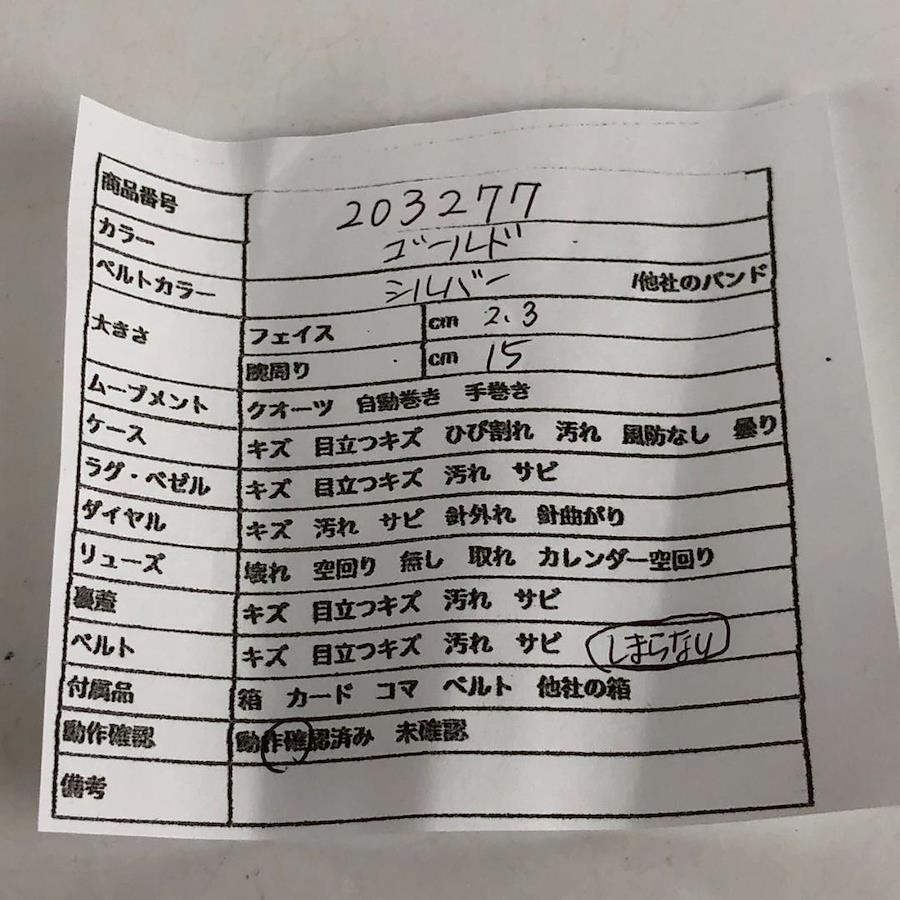 商品番号 203277
カラー ゴールド
ベルトカラー シルバー /他社のバンド
大きさ フェイス cm 2.3
腕周り cm 15
ムーブメント クオーツ 自動巻き 手巻き
ケース キズ 目立つキズ ひび割れ 汚れ 風防なし 曇り
ラグ・ベゼル キズ 目立つキズ 汚れ サビ
ダイヤル キズ 汚れ サビ 針外れ 針曲がり
リューズ 壊れ 空回り 無し 取れ カレンダー空回り
裏蓋 キズ 目立つキズ 汚れ サビ
ベルト キズ 目立つキズ 汚れ サビ しまらない
付属品 箱 カード コマ ベルト 他社の箱
動作確認 動作確認済み 未確認
備考